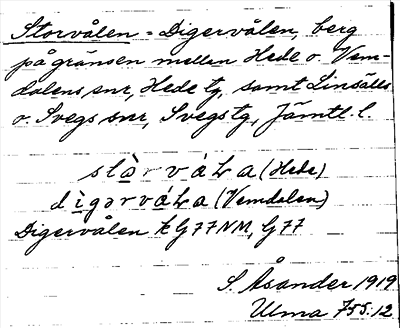 Storvålen = Digervålen, berg
på gränsen mellan Hede o. Vem-
dalens snr, Hede tg, samt Linsälls
o. Svegs snr, Svegs tg, Jämtl. l.
stòrváLa (Hede)
dìgərváLa (Vemdalen)
Digervålen k G77NM, G77
S. Åsander 1919
Ulma 755:12